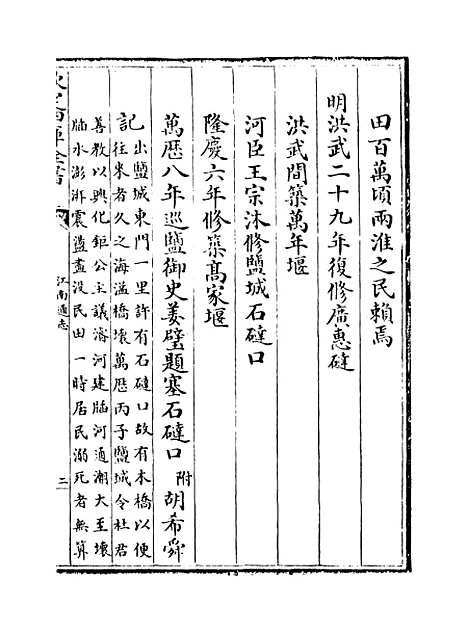 田百萬頃兩淮之民賴焉
明洪武二十九年復修廣惠䃮
洪武間築萬年堰
河臣王宗沐修鹽城石䃮口
隆慶六年修築髙家堰
萬厯八年巡鹽御史姜璧題塞石䃮口附胡希舜
記出鹽城東門一里許有石䃮口故有木橋以便
往來者久之海溢橋壞萬厯丙子鹽城令杜君
善教以興化鉅公主議濬河建牐河通潮大至壞
牐水澎湃震盪盡没民田一時居民溺死者無算
江南通志
二